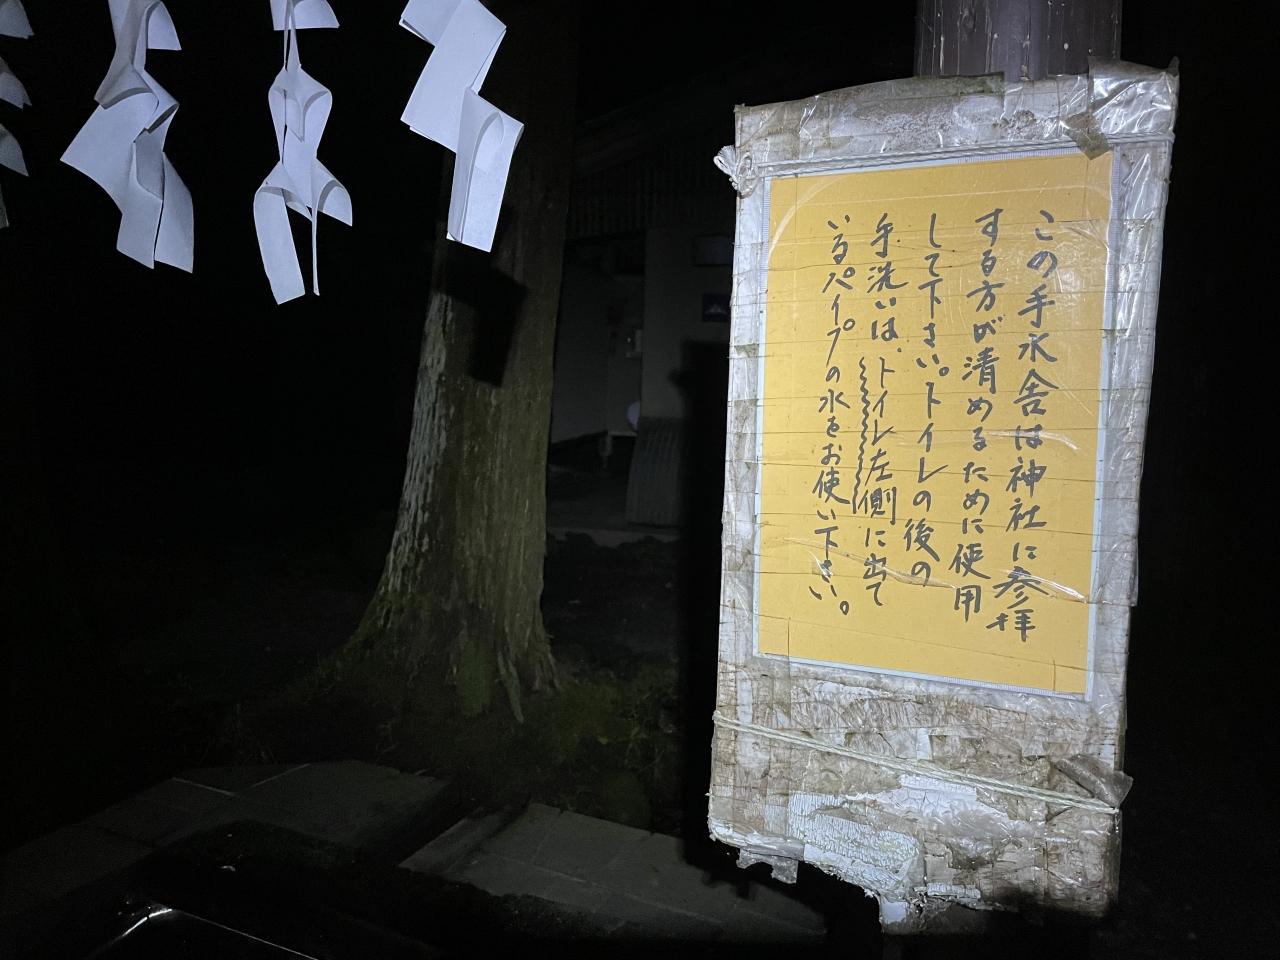 この手水舎は神社に参拝
する方が清めるために使用
して下さい。トイレの後の
手洗いは、トイレ左側に出て
いるパイプの水をお使い下さい。